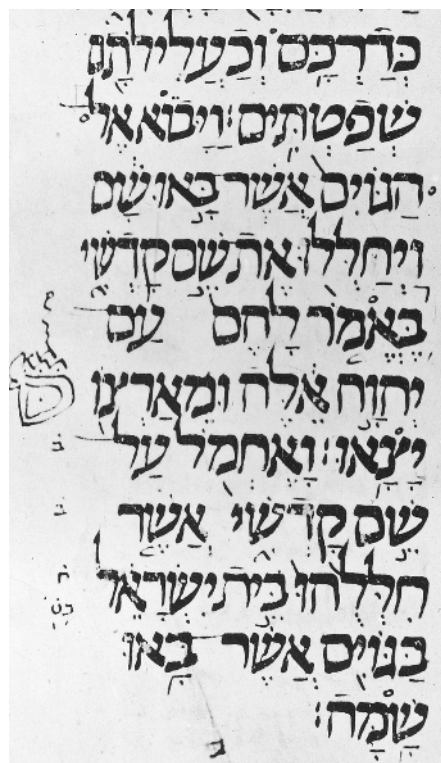 כְּדַרְכָּם וְכַעֲלִילֹתָם
שְׁפַטְתִּים׃ וַיָּבֹא אֶל
הַגּוֹיִם אֲשֶׁר בָּאוּ שָׁם
וַיְחַלְּלוּ אֶת שֵׁם קָדְשִׁי
בֶּאֱמֹר לָהֶם עַם
יְהוָה אֵלֶּה וּמֵאַרְצוֹ
יָצָאוּ׃ וָאֶחְמֹל עַל
שֵׁם קָדְשִׁי אֲשֶׁר
חִלְּלֻהוּ בֵּית יִשְׂרָאֵל
בַּגּוֹיִם אֲשֶׁר בָּאוּ
שָׁמָּה׃